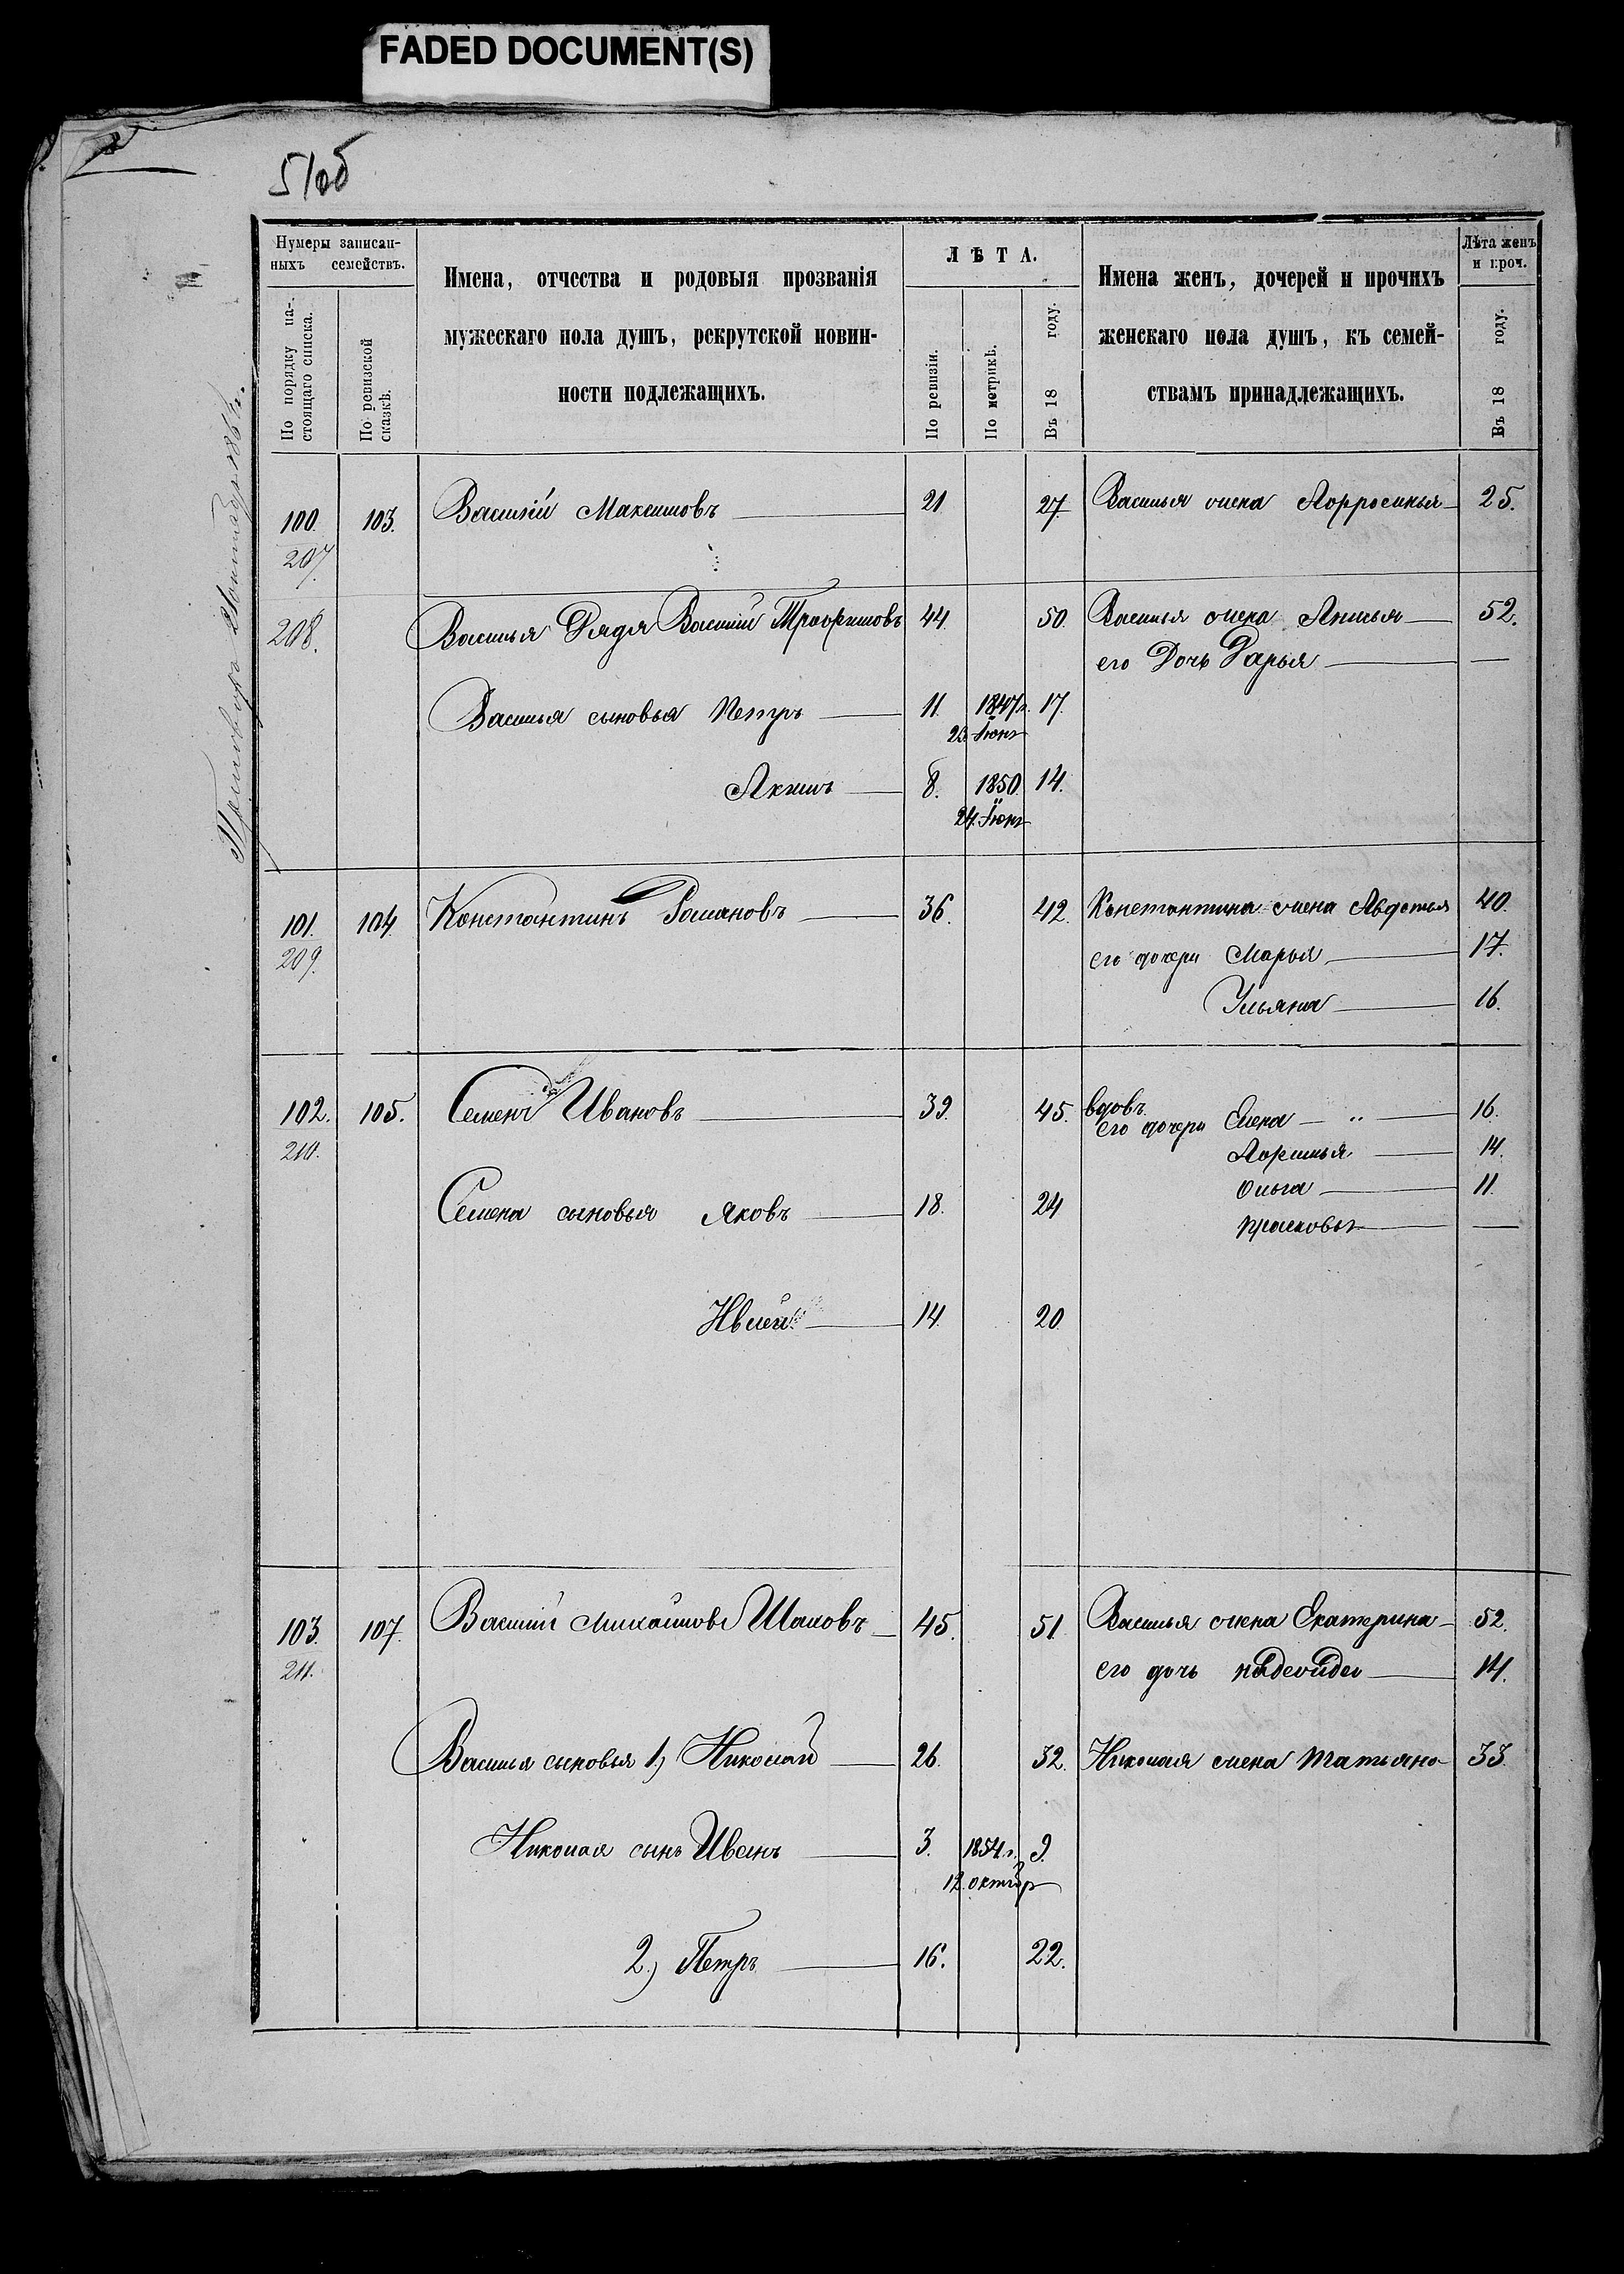 FADED DOCUMENT(S)
51об
Нумеры записан-
ныхъ семействъ.
По порядку на-
стоящаго списка.
По ревизской
сказкѣ.
Имена, отчества и родовыя прозванія
мужескаго пола душъ, рекрутской повин-
ности подлежащихъ.
ЛѢТА.
По ревизіи.
По метрикѣ.
Въ 18 году.
Имена женъ, дочерей и прочихъ
женскаго пола душъ, къ семей-
ствамъ принадлежащихъ.
Лѣта женъ
и проч.
Въ 18 году.
100. 103. Василій Максимовъ 21 27. Василья жена 25.
207.
208. Василья Дядя Василій Трофимовъ 44. 50. Василья жена Анисья 52.
его Дочь Дарья —
Василья сыновья Петръ 11. 1847г. 17.
23 Іюня
Акимъ 8. 1850. 14.
24 Іюня
101. 104 Константинъ Романовъ 36. 42. Константина жена Авдотья 40.
209. его дочери Марья 17.
Ульяна 16.
102. 105. Семенъ Ивановъ 39. 45. вдовъ
его дочери Елена „ 16.
210. Афимья 14.
Семена сыновья Яковъ 18. 24 Ольга 11.
прасковья —
14. 20
103. 107. Василій Михайловъ Шаповъ 45. 51 Василья жена Екатерина 52.
211. его дочь 14.
Василья сыновья 1.) Николай 26. 32. Николая жена Татьяна 33.
Николая сынъ Иванъ 3. 1854.г. 9.
12. октябр
2.) Петръ 16. 22.